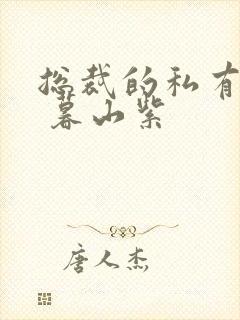 总裁的私有
暮山紫
唐人杰